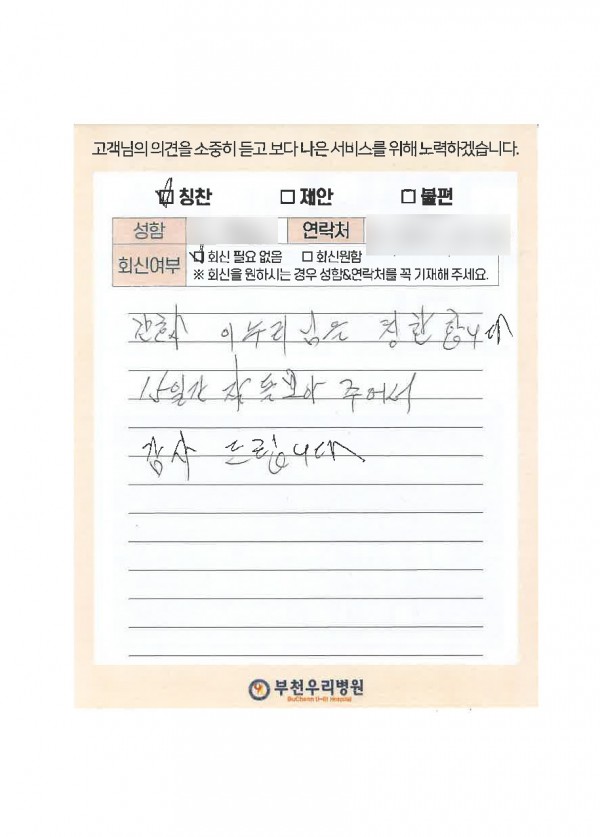 고객님의 의견을 소중히 듣고 보다 나은 서비스를 위해 노력하겠습니다.
칭찬 제안 불편
성함 연락처
회신여부 회신 필요 없음 회신원함
※ 회신을 원하시는 경우 성함&연락처를 꼭 기재해 주세요.
간호사 이누리님을 칭찬합니다
15일간 잘 돌보아 주어서
감사 드립니다
부천우리병원
BuCheon U-RI Hospital